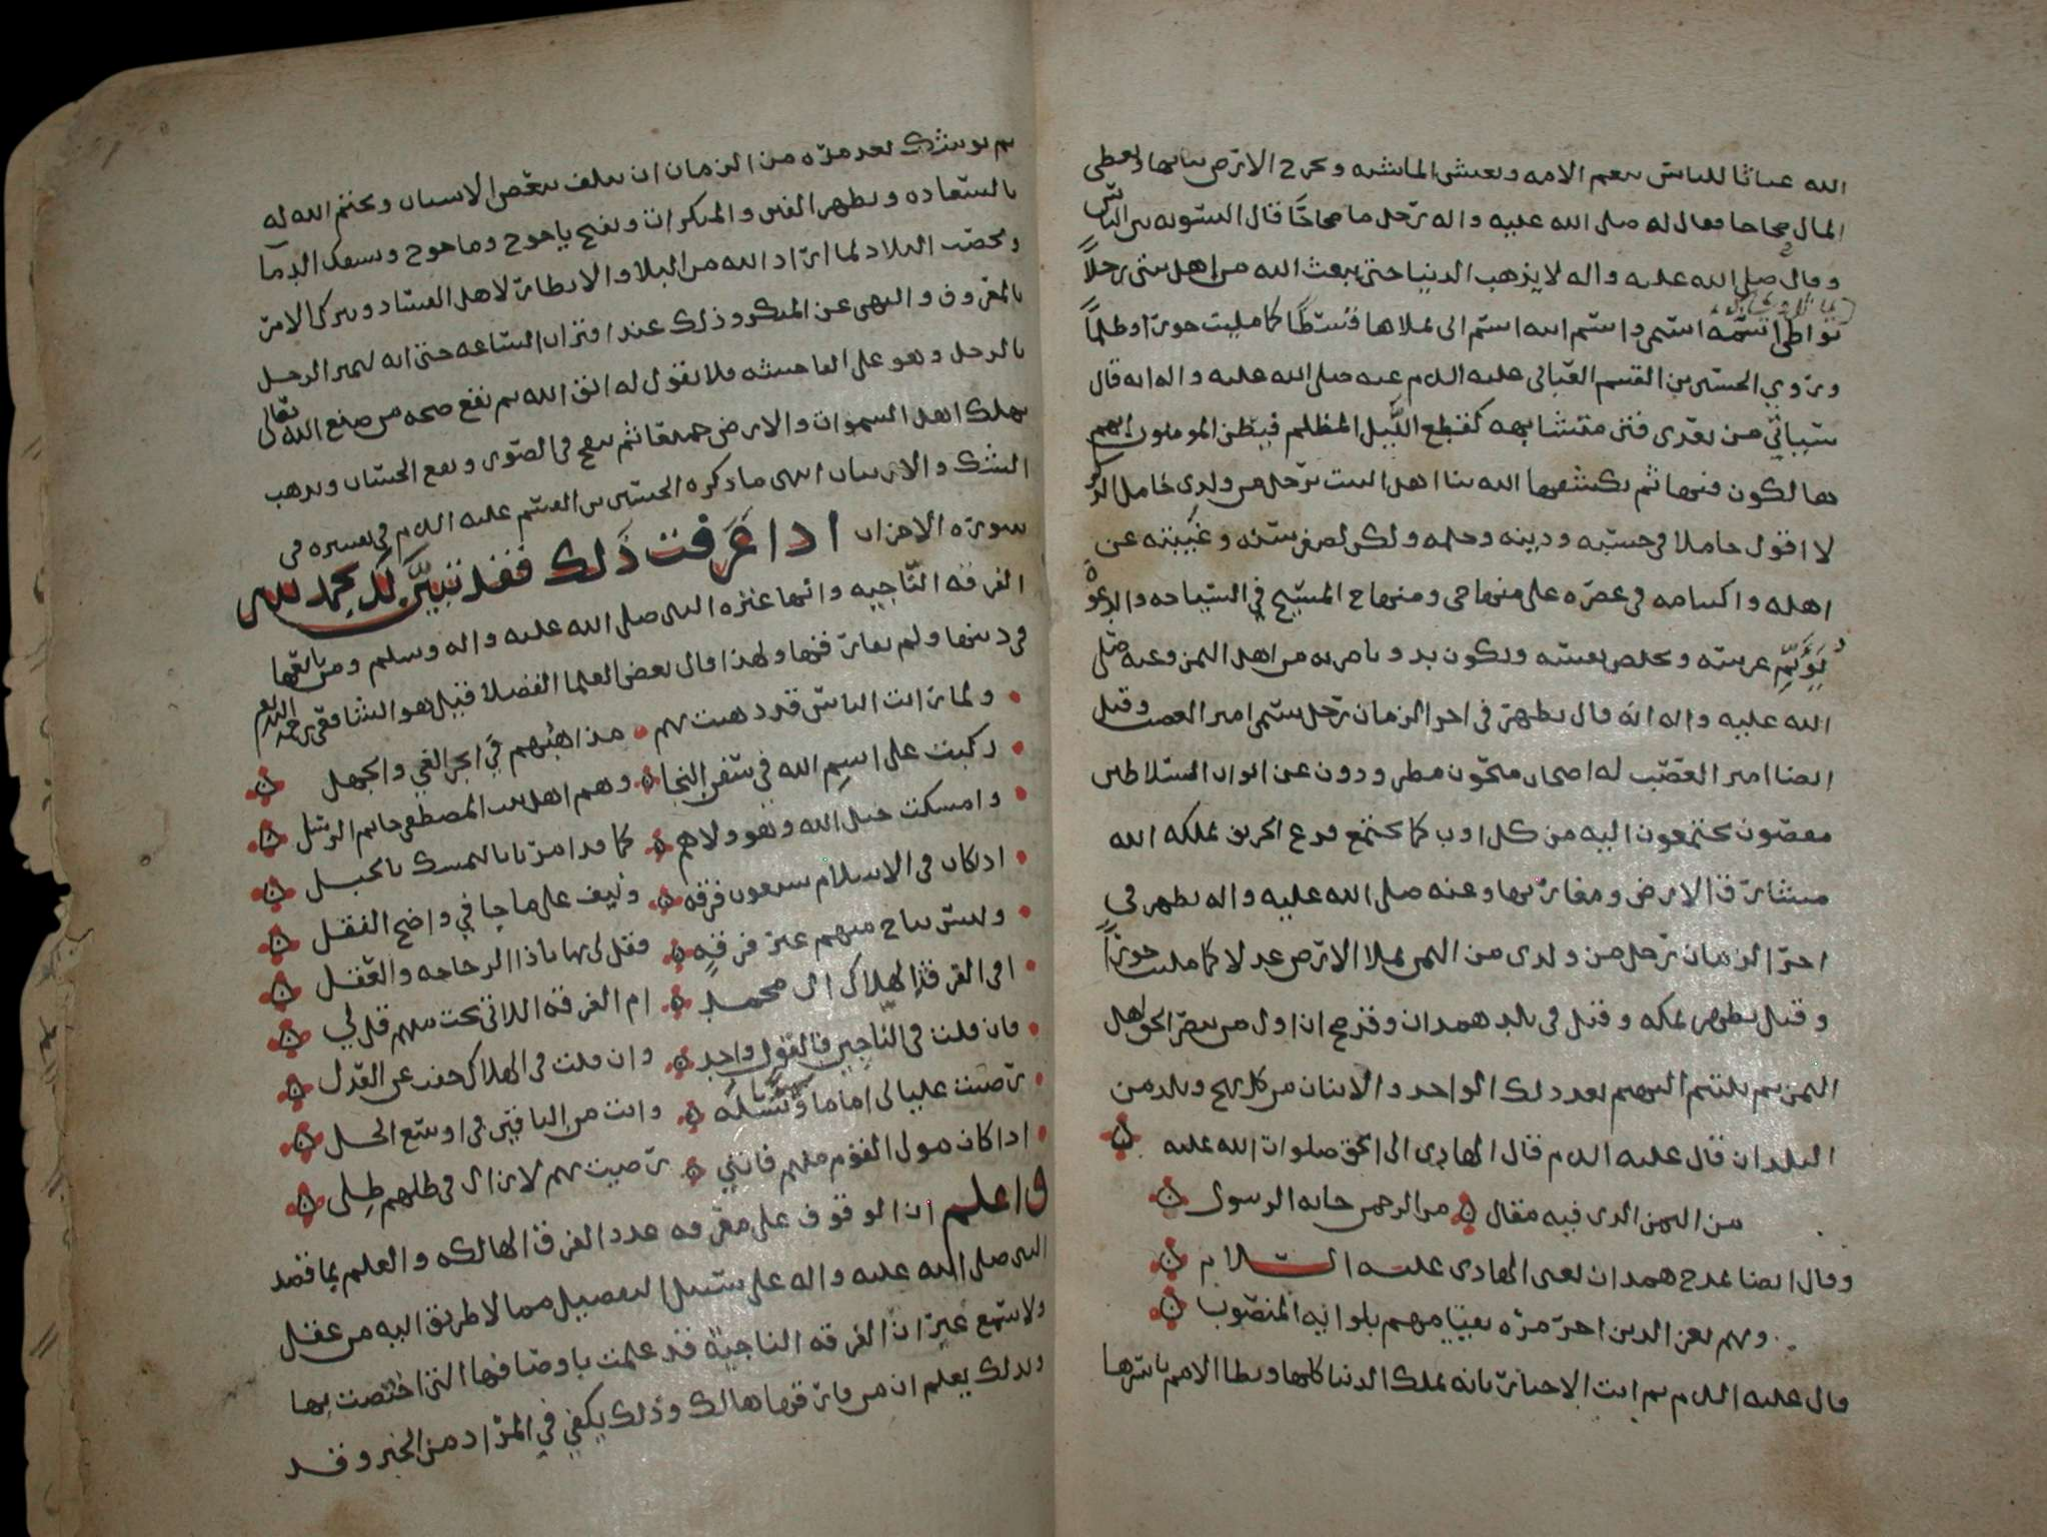 الله عباثا للناس سعم الامه وبعيش الماشيه وتخرج الارض نباتها ويعطي
المال صحاحا فقال له صلى الله عليه واله رجل ما صحاحًا قال السويه بين الناس
وقال صلى الله عليه واله لا يذهب الدنيا حتى يبعث الله من اهل بيتي رجلاً
تواطئ اسمه اسمي واسم ابيه اسم ابي يملاها قسطًا كما مليت جورا وظلمًا
ويروي الحسين بن القسم العياني عليه السلم عنه صلى الله عليه واله انه قال
سياتي من بعدي فتن متشابهه كقطع الليل المظلم فيظن المومنون انهم
هالكون فيها ثم يكشفها الله بنا اهل البيت برجل من ولدي خامل الذكر
لا اقول خاملا في حسبه ودينه وحلمه ولكن لصغر سنه وغيبته عن
اهله واكتتامه في عصره على منهاجي ومنهاج المسيح في السياحه والدعوة
عرسه ويخلص بعيشه ويكون بدو ناصريه من اهل اليمن وعنه صلى
الله عليه واله انه قال يظهر في اخر الزمان رجل يسمى امير العصب وقيل
ايضا امير الغضب له اصحاب منحون مطرودون عن ابواب السلاطين
مقصون يجتمعون اليه من كل اوب كما يجتمع قزع الخريف يملكه الله
مشارق الارض ومغاربها وعنه صلى الله عليه واله يظهر في
اخر الزمان رجل من ولدي من اليمن يملا الارض عدلا كما مليت جورًا
وقيل يظهر بمكه وقيل في بلد همدان وقد صح ان اول من ينصر الحق اهل
اليمن ثم يلتئم اليهم بعد ذلك الواحد والاثنان من كل فج وبلد من
البلدان قال عليه السلم قال الهادي الى الحق صلوات الله عليه
من اليمن الذي فيه مقال ۞ من الرحمن جابه الرسول
وقال ايضا يمدح همدان يعني الهادي عليه السلام
وبهم يعز الدين اخر مره بفتى منهم بلوائه المنصوب
قال عليه السلم ثم اتت الاخبار بانه يملك الدنيا كلها ويطا الامم باسرها
ثم يوشك بعد مده من الزمان ان يتلف بعض الاسباب ويختم الله له
بالسعاده ويظهر الفتن والمنكرات وتفتح ياجوج وماجوج ويسفك الدما
ويخصب البلاد لما اراد الله من البلا والانظار لاهل الفساد ويترك الامر
بالمعروف والنهي عن المنكر وذلك عند اقتراب الساعه حتى انه ليمر الرجل
بالرجل وهو على الفاحشه فلا يقول له اتق الله ثم تقع صيحه من صنع الله تعالى
يهلك اهل السموات والارض جميعا ثم ينفخ في الصور ويقع الحساب ويذهب
الشك والارتياب انتهى ما ذكره الحسين بن القسم عليه السلم في تفسيره في
سوره الاحزاب اذا عرفت ذلك فقد تبين لك بحمد الله
الفرقه الناجيه وانها عتره النبي صلى الله عليه واله وسلم ومن تابعها
في دينها ولم يفارقها ولهذا قال بعض العلما الفضلا قيل هو الشافعي رحمه الله
ولما رايت الناس قد ذهبت بهم ۞ مذاهبهم في ابحر الغي والجهل
ركبت على اسم الله في سفن النجا ۞ وهم اهل بيت المصطفى خاتم الرسل
وامسكت حبل الله وهو ولاهم ۞ كما قد امرنا بالتمسك بالحبل
اذا كان في الاسلام سبعون فرقه ۞ ونيف على ما جا في واضح النقل
وليس بناج منهم غير فرقه ۞ فقل لي بها يا ذا الرجاحه والعقل
افي الفرقة الهلاك ال محمد ۞ ام الفرقه اللاتي نجت منهم قل لي
فان قلت في الناجين فالقول واحد ۞ وان قلت في الهلاك حفت عن العدل
رضيت عليا لي اماما ونسله ۞ وانت من الباقين في اوسع الحل
اذا كان مولى القوم منهم فانني ۞ رضيت بهم لا زال في ظلهم ظلي
واعلم ان الوقوف على معرفه عدد الفرق الهالكه والعلم بما قصد
النبي صلى الله عليه واله على سبيل التفصيل مما لا طريق اليه من عقل
ولا سمع غير ان الفرقه الناجية قد علمت باوصافها التي اختصت بها
وبذلك يعلم ان من فارقها هالك وذلك يكفي في المراد من الخبر وقد